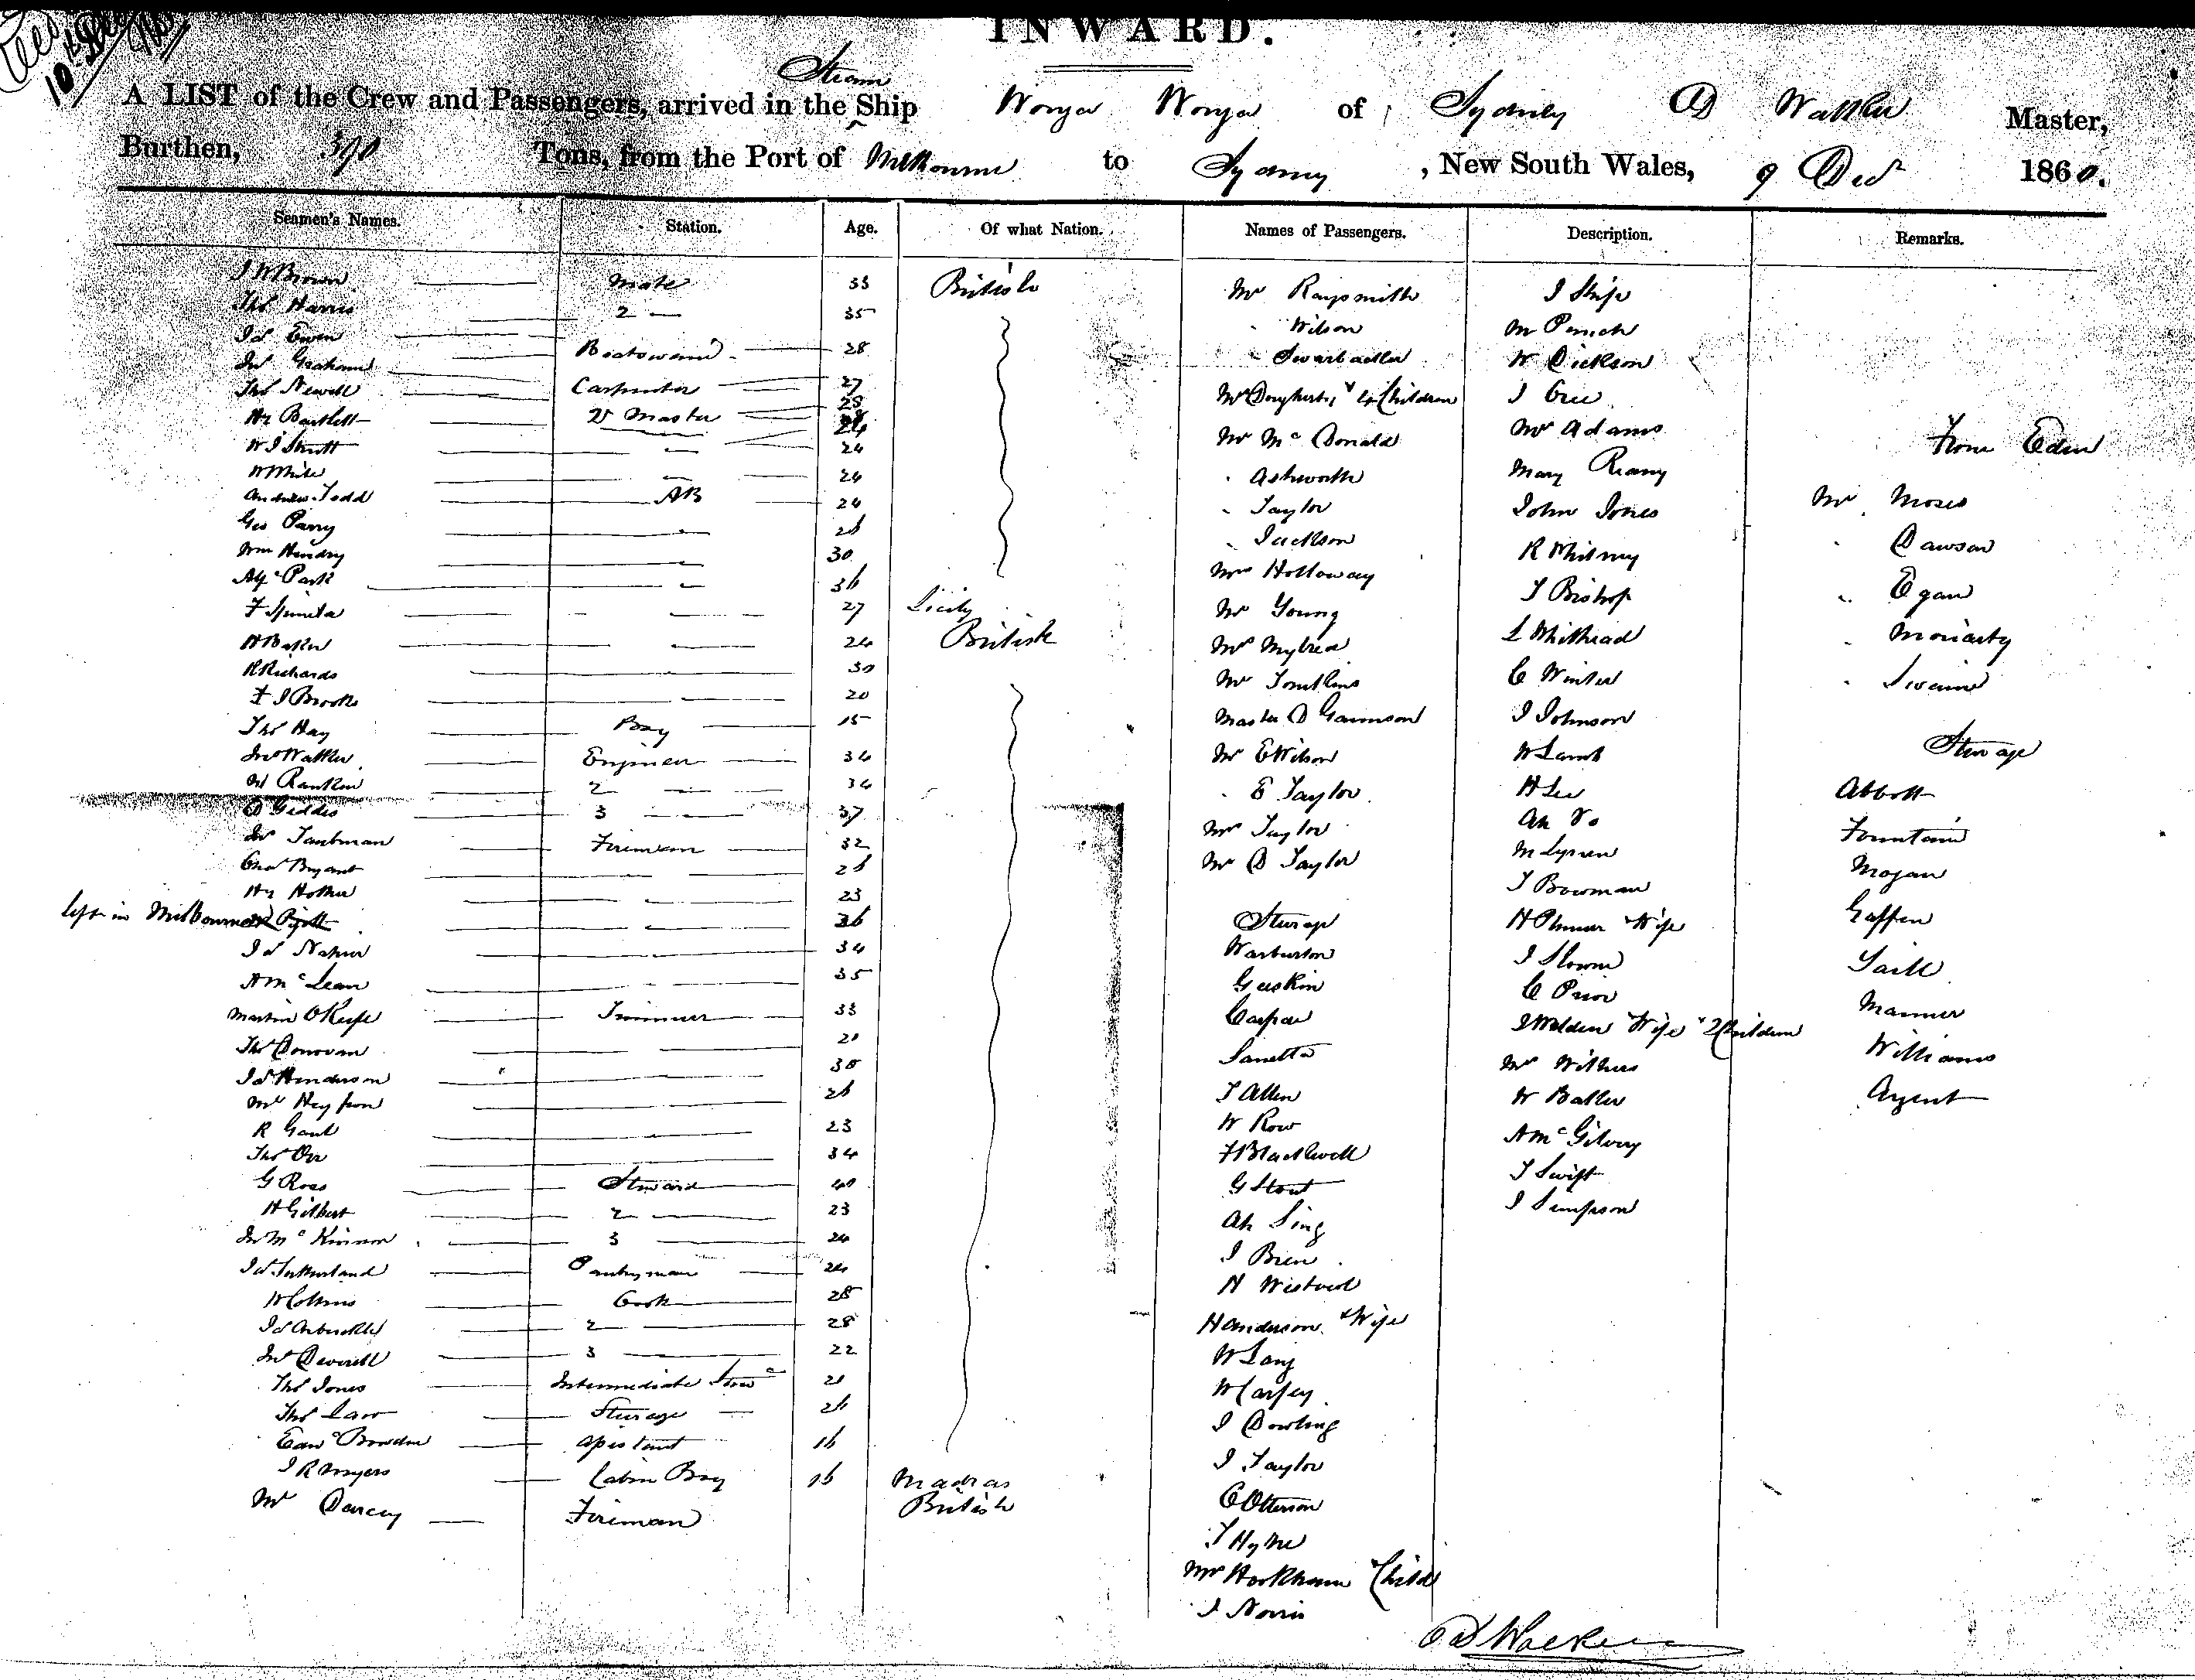 10th Dec
INWARD.
Steam
A LIST of the Crew and Passengers, arrived in the Ship Wonga Wonga of Sydney D Walker Master,
Burthen, Tons, from the Port of Melbourne to Sydney, New South Wales, 9 Dec 1860.
Seamen's Names. Station. Age. Of what Nation. Names of Passengers. Description. Remarks.
J W Brown Mate 33 British
Thos Harris 2 — 35
Jas Ewen Boatswain 28
Jno Graham Carpenter 27
Thos Newell
Hy Bartlett Qr Master
W J Strutt — 24
W White — 24
Andrew Todd AB 24
Geo Parry — 26
Wm Hendry — 30
Alf Park — 36
F — 27 Sicily
H Baker — 24 British
R Richards — 30
F J Brooks — 20
Thos Hay Boy 15
Jno Walker Engineer 34
Rankin 2 — 34
D Geddes 3 — 37
Jno Taubman Fireman 32
Chas Bryant — 26
Hy — 23
left in Melbourne — 36
Jas Napier — 34
A McLean — 35
Martin O'Keefe Trimmer 33
Thos Donovan — 20
Jas Henderson — 30
— 26
R Gant — 23
Thos Orr — 34
G Ross Steward 40
H Gilbert 2 — 23
Jno McKinnon 3 — 24
Jas Sutherland Pantryman 24
W Collins Cook 28
Jas Arbuckle 2 — 28
Jno Deverell 3 — 22
Thos Jones Intermediate Stewd 21
Thos Law Steerage — 26
Edwd Bowden Assistant 16
J R Myers Cabin Boy 16 Madras
Mr Darcey Fireman British
Mr Raysmith
" Wilson
"
Mrs Dougherty & 4 Children
Mr McDonald
" Ashworth
" Taylor
" Jackson
Mrs Holloway
Mr Young
Mrs Mylrea
Mr Tomkins
Master D Garrison
Mr E Wilson
" E Taylor
Mrs Taylor
Mr D Taylor
Steerage
Warburton
Gaskin
Caspar
Sanetta
T Allen
W Row
F Blackwell
G Stout
Ah Sing
J Brien
H
H Anderson & Wife
W Lang
W Carfey
J Dowling
J Taylor
C Otterson
T Hyne
Mrs Hookham & Child
J Norris
J
M
W Dickson
J
Mr Adams
Mary Reany
John Jones
R Whitney
T Bishop
L Whithead
C Winter
J Johnson
W Lamb
H Lee
Ah
M
T Bowman
H Plumer & Wife
J
C Prior
J Welden Wife & 2 Children
Mr Withers
W Balter
A McGilvery
T Swift
J Simpson
From Eden
Mr Moses
" Dawson
" Egan
" Moriarty
" Swain
Steerage
Abbott
Fountain
Mogan
Gaffen
Saill
Manner
Williams
Agent
D Walker